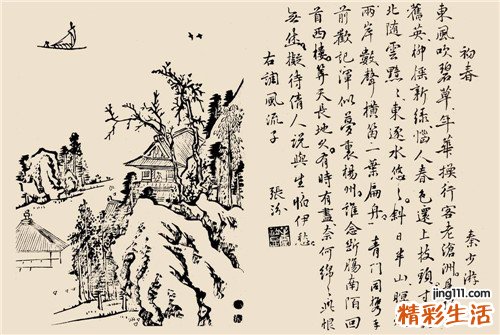 初春
秦少游
東風吹碧草年華換行客老滄洲見
舊英柳搖新綠惱人春色還上枝頭寸
北隨雲黯々東逐水悠々斜日半山暝
兩岸數聲橫笛一葉扁舟青門同携
前歡記渾似夢裏楊州誰念斷腸南陌回
首西樓算天長地久有時有盡奈何綿々此恨
無休擬待倩人說與生怕伊愁
右調風流子
張汾
jing111.com
精彩生活